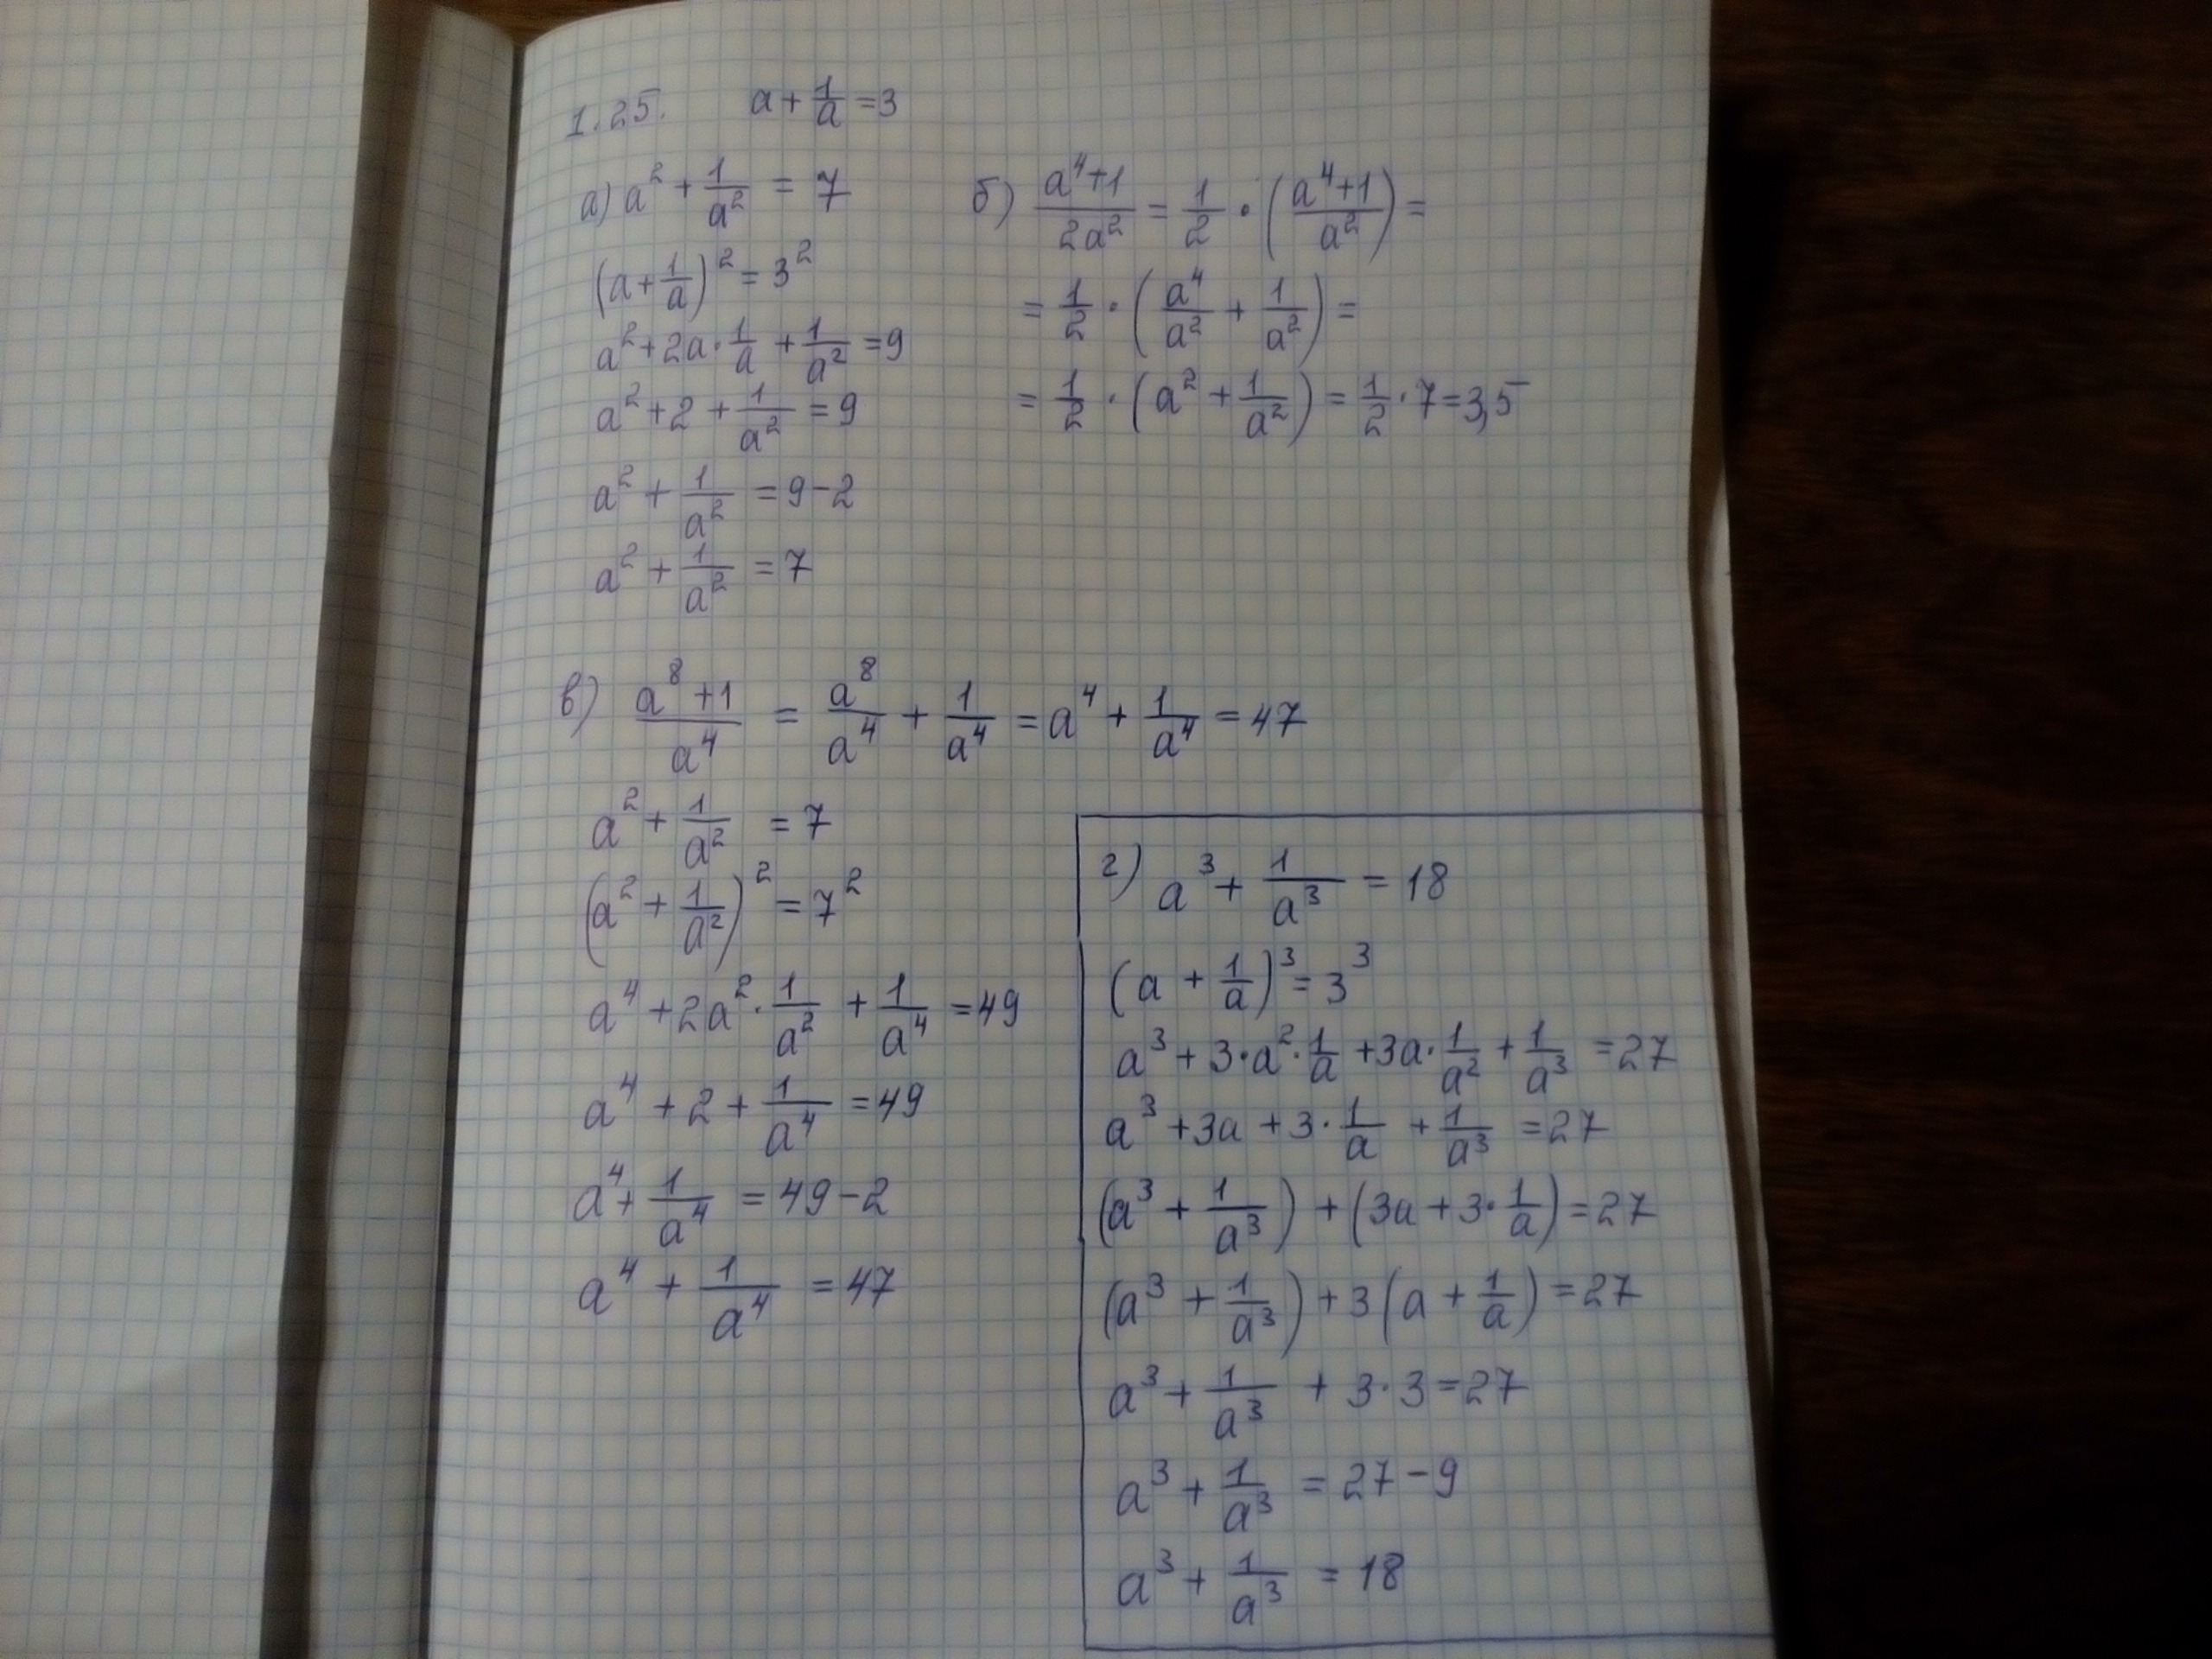 1.25. a + 1/a = 3
а) a² + 1/a² = 7
(a + 1/a)² = 3²
a² + 2a · 1/a + 1/a² = 9
a² + 2 + 1/a² = 9
a² + 1/a² = 9 - 2
a² + 1/a² = 7
б) (a⁴+1)/(2a²) = 1/2 · ((a⁴+1)/a²) =
= 1/2 · (a⁴/a² + 1/a²) =
= 1/2 · (a² + 1/a²) = 1/2 · 7 = 3,5
в) (a⁸+1)/a⁴ = a⁸/a⁴ + 1/a⁴ = a⁴ + 1/a⁴ = 47
a² + 1/a² = 7
(a² + 1/a²)² = 7²
a⁴ + 2a² · 1/a² + 1/a⁴ = 49
a⁴ + 2 + 1/a⁴ = 49
a⁴ + 1/a⁴ = 49 - 2
a⁴ + 1/a⁴ = 47
г) a³ + 1/a³ = 18
(a + 1/a)³ = 3³
a³ + 3 · a² · 1/a + 3a · 1/a² + 1/a³ = 27
a³ + 3a + 3 · 1/a + 1/a³ = 27
(a³ + 1/a³) + (3a + 3 · 1/a) = 27
(a³ + 1/a³) + 3(a + 1/a) = 27
a³ + 1/a³ + 3 · 3 = 27
a³ + 1/a³ = 27 - 9
a³ + 1/a³ = 18